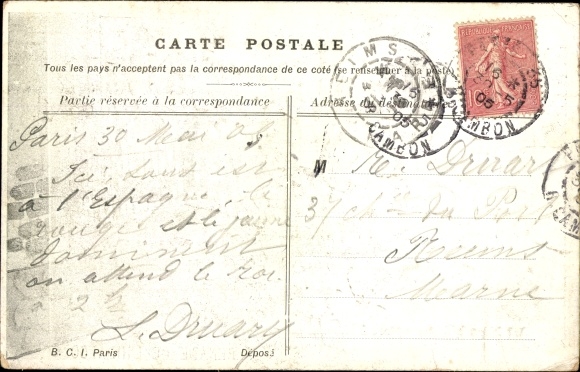 CARTE POSTALE
Tous les pays n'acceptent pas la correspondance de ce coté (se renseigner à la poste)
Partie réservée à la correspondance
Adresse du destinataire
Paris 30 Mai 05
Ici tout est
à l'Espagne, le
rouge et le jaune
dominent
on attend le roi
2 h
L. Druary
M r. Druary
37 ch. du Port
Reims
Marne
REIMS
CAMBON
B. C. I. Paris
Déposé